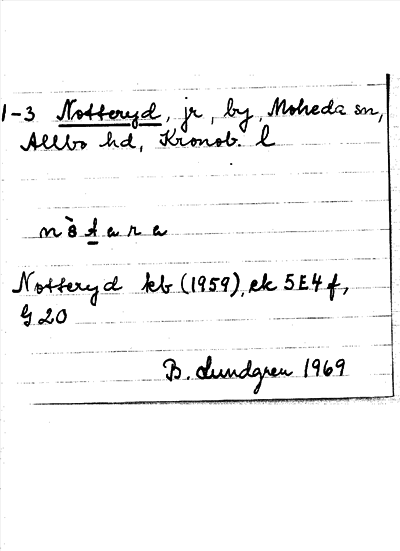 1-3 Notteryd, jr, by, Moheda sn,
Allbo hd, Kronob. l
Notteryd kb (1959), ek 5E4f,
G 20
B. Lundgren 1969